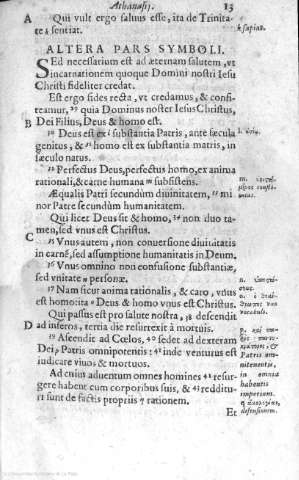 Athanasij. 13
A Qui vult ergo saluus esse, ita de Trinita-
te k sentiat. k sapiat.
ALTERA PARS SYMBOLI.
SEd necessarium est ad æternam salutem, vt
incarnationem quoque Domini nostri Iesu
Christi fideliter credat.
Est ergo fides recta, vt credamus, & confi-
teamur, 29 quia Dominus noster Iesus Christus,
B Dei Filius, Deus & homo est.
30 Deus est ex l substantia Patris, ante sæcula
genitus, & 31 homo est ex substantia matris, in
sæculo natus.
32 Perfectus Deus, perfectus homo, ex anima
rationali, & carne humana m subsistens.
Æqualis Patri secundùm diuinitatem, 33 mi
nor Patre secundùm humanitatem.
Qui licet Deus sit & homo, 34 non duo ta-
men, sed vnus est Christus.
C 35 Vnus autem, non conuersione diuinitatis
in carnē, sed assumptione humanitatis in Deum.
36 Vnus omnino non confusione substantiæ,
sed vnitate n personæ.
37 Nam sicut anima rationalis, & caro, vnus
est homo: ita o Deus & homo vnus est Christus.
Qui passus est pro salute nostra, 38 descendit
D ad inferos, tertia die resurrexit à mortuis.
39 Ascendit ad Cœlos, 40 sedet ad dexteram
Dei, Patris omnipotentis: 41 inde venturus est
iudicare viuos & mortuos.
Ad cuius aduentum omnes homines 42 resur-
gere habent cum corporibus suis, & 43 redditu-
ri sunt de factis propriis q rationem.
Et
Patris om-
nitenentis,
in omnia
habentis
imperium.
defensionem.